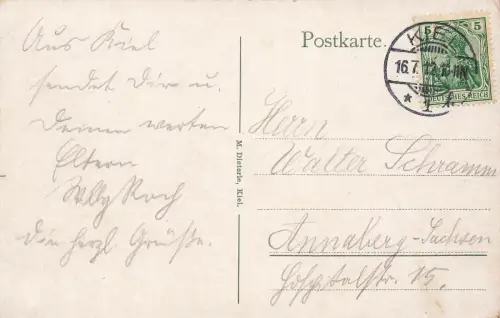 Postkarte.
KIEL
16.7.12
5
5
DEUTSCHES REICH
Aus Kiel
sendet Dir u.
Deinen werten
Eltern
Willy Koch
die herzl. Grüße.
M. Dieterle, Kiel.
Herrn
Walter Schramm
Annaberg-Sachsen
Hospitalstr. 15.